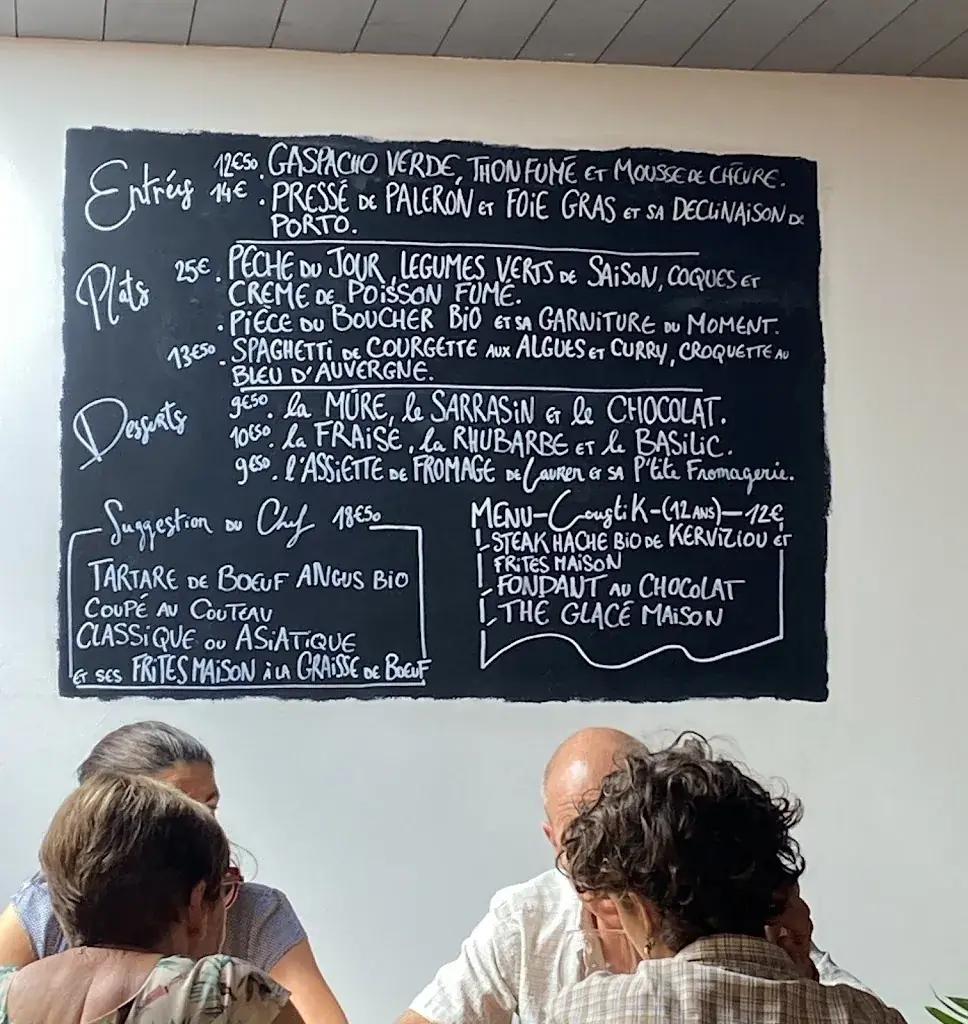 Entrées 12€50. GASPACHO VERDE, THON FUMÉ ET MOUSSE DE CHÈVRE.
14€. PRESSÉ DE PALERON ET FOIE GRAS ET SA DECLINAISON DE
PORTO.
Plats 25€. PECHE DU JOUR, LEGUMES VERTS DE SAISON, COQUES ET
CREME DE POISSON FUMÉ.
. PIÈCE DU BOUCHER BIO ET SA GARNITURE DU MOMENT.
13€50. SPAGHETTI DE COURGETTE AUX ALGUES ET CURRY, CROQUETTE AU
BLEU D'AUVERGNE.
Desserts 9€50. la MÛRE, le SARRASIN ET le CHOCOLAT.
10€50. la FRAISE, la RHUBARBE ET le BASILIC.
9€50. l'ASSIETTE DE FROMAGE DE LAUREN ET SA P'tite Fromagerie.
Suggestion DU Chef 18€50
TARTARE DE BOEUF ANGUS BIO
COUPÉ AU COUTEAU
CLASSIQUE OU ASIATIQUE
ET SES FRITES MAISON À LA GRAISSE DE BOEUF
MENU-CoustiK-(12 ANS)-12€
- STEAK HACHE BIO DE KERVIZIOU ET
FRITES MAISON
- FONDANT AU CHOCOLAT
- THE GLACÉ MAISON